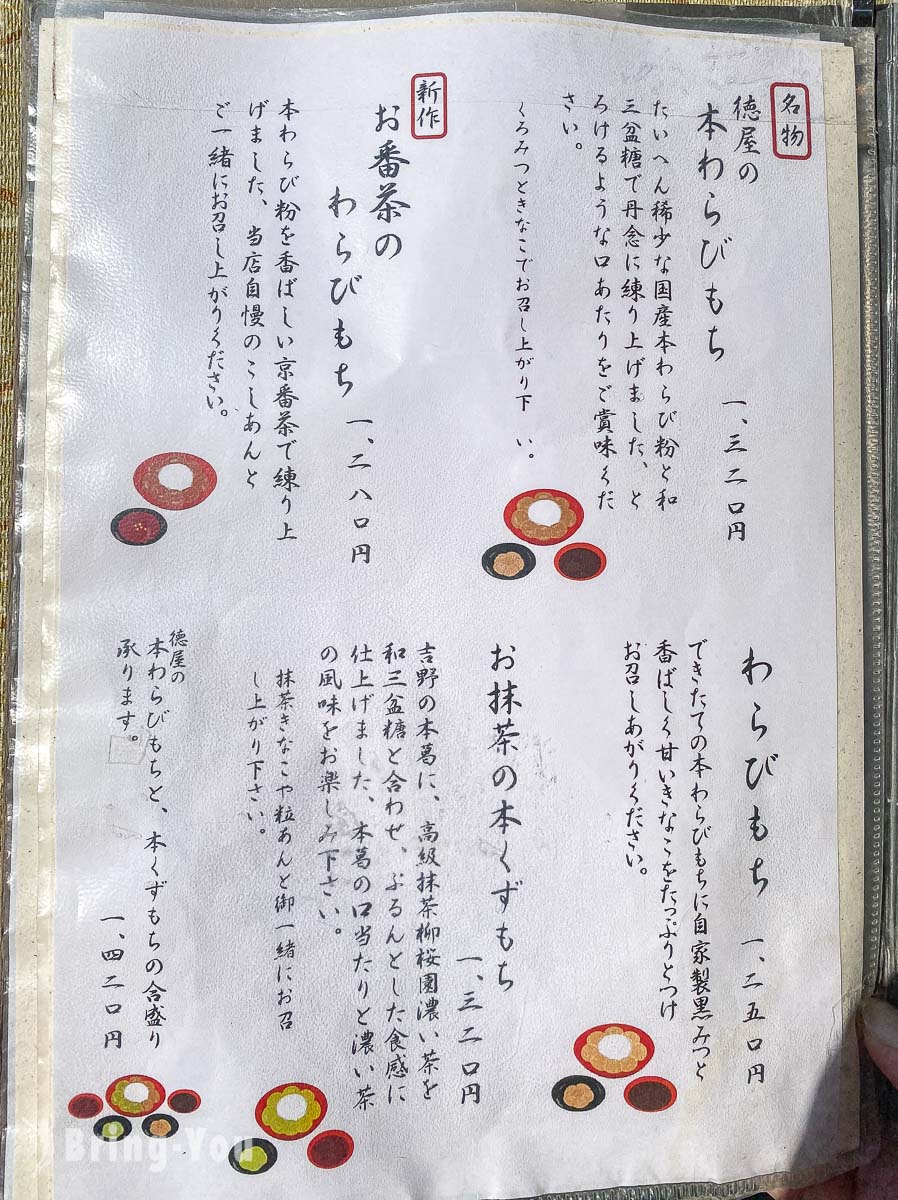 名物
徳屋の
本わらびもち
一、三二〇円
たいへん稀少な国産本わらび粉と和
三盆糖で丹念に練り上げました、と
ろけるような口あたりをご賞味くだ
さい。
くろみつときなこでお召し上がり下 い。
新作
お番茶の
わらびもち
一、二八〇円
本わらび粉を香ばしい京番茶で練り上
げました、当店自慢のこしあんと
ご一緒にお召し上がりください。
わらびもち
一、二五〇円
できたての本わらびもちに自家製黒みつと
香ばしく甘いきなこをたっぷりとつけ
お召しあがりください。
お抹茶の本くずもち
一、三二〇円
吉野の本葛に、高級抹茶柳桜園濃い茶を
和三盆糖と合わせ、ぷるんとした食感に
仕上げました、本葛の口当たりと濃い茶
の風味をお楽しみ下さい。
抹茶きなこや粒あんと御一緒にお召
し上がり下さい。
徳屋の
本わらびもちと、本くずもちの合盛り
承ります。
一、四二〇円
Bring-You